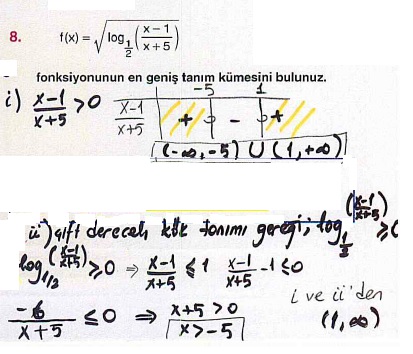 8. f(x) = √(log_{1/2}((x−1)/(x+5)))
fonksiyonunun en geniş tanım kümesini bulunuz.
i) (x-1)/(x+5) > 0
-5 1
(x-1)/(x+5) + - +
(-∞, -5) ∪ (1, +∞)
ii) çift dereceli kök tanımı gereği; log_{1/2}((x-1)/(x+5)) ≥ 0
log_{1/2}((x-1)/(x+5)) ≥ 0 ⇒ (x-1)/(x+5) ≤ 1 (x-1)/(x+5) - 1 ≤ 0
-6/(x+5) ≤ 0 ⇒ x+5 > 0
x > -5
i ve ii'den
(1, ∞)